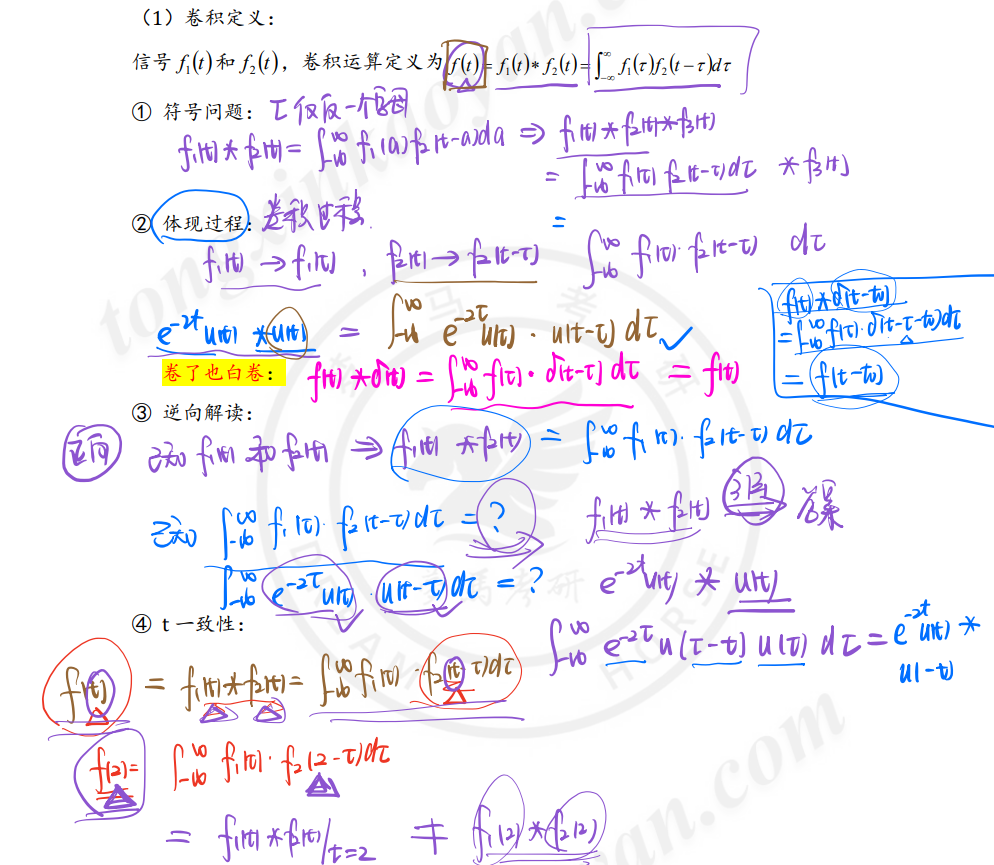 （1）卷积定义：
信号 f₁(t) 和 f₂(t)，卷积运算定义为 f(t) = f₁(t)*f₂(t) = ∫_{-∞}^{∞} f₁(τ)f₂(t-τ)dτ
① 符号问题： τ仅仅一个字母
f₁(t)*f₂(t) = ∫_{-∞}^{∞} f₁(a)f₂(t-a)da ⇒ f₁(t)*f₂(t)*f₃(t)
= ∫_{-∞}^{∞} f₁(τ)f₂(t-τ)dτ *f₃(t)
② 体现过程：卷积过程. =
f₁(t)→f₁(τ)，f₂(t)→f₂(t-τ) ∫_{-∞}^{∞} f₁(τ)·f₂(t-τ) dτ
e^{-2t}u(t)*u(t) = ∫_{-∞}^{∞} e^{-2τ}u(τ)·u(t-τ)dτ ✓
f(t)*δ(t-t₀)
= ∫_{-∞}^{∞} f(τ)·δ(t-τ-t₀)dτ
= f(t-t₀)
卷了也白卷： f(t)*δ(t) = ∫_{-∞}^{∞} f(τ)·δ(t-τ)dτ = f(t)
③ 逆向解读：
正向 已知 f₁(t) 和 f₂(t) ⇒ f₁(t)*f₂(t) = ∫_{-∞}^{∞} f₁(τ)·f₂(t-τ)dτ
已知 ∫_{-∞}^{∞} f₁(τ)·f₂(t-τ)dτ = ? f₁(t)*f₂(t) → 答案
∫_{-∞}^{∞} e^{-2τ}u(τ)·u(t-τ)dτ = ? e^{-2t}u(t)*u(t)
④ t一致性：
∫_{-∞}^{∞} e^{-2τ}u(τ-t)u(τ)dτ = e^{-2t}u(t)*
u(-t)
f(t) = f₁(t)*f₂(t) = ∫_{-∞}^{∞} f₁(τ)·f₂(t-τ)dτ
f(2) = ∫_{-∞}^{∞} f₁(τ)·f₂(2-τ)dτ
= f₁(t)*f₂(t)|_{t=2} ≠ f₁(2)*f₂(2)